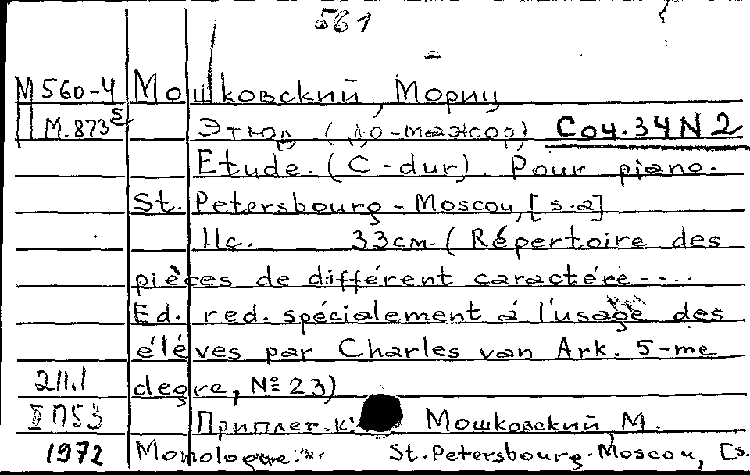 561
М560-4 Мошковский, Мориц
М.873 Этюд. (до-мажор) Соч. 34 N 2
Etude. (C-dur). Pour piano.
St. Petersbourg - Moscou, [s.a]
11с. 33см. (Répertoire des
pièces de différent caractére ----
Ed. red. spécialement á l'usage des
éléves par Charles van Ark. 5-me
211.1 degre, № 23)
II П53 Приплет. к: Мошковский, М.
1972 Monologue... St. Petersbourg-Moscou, [s